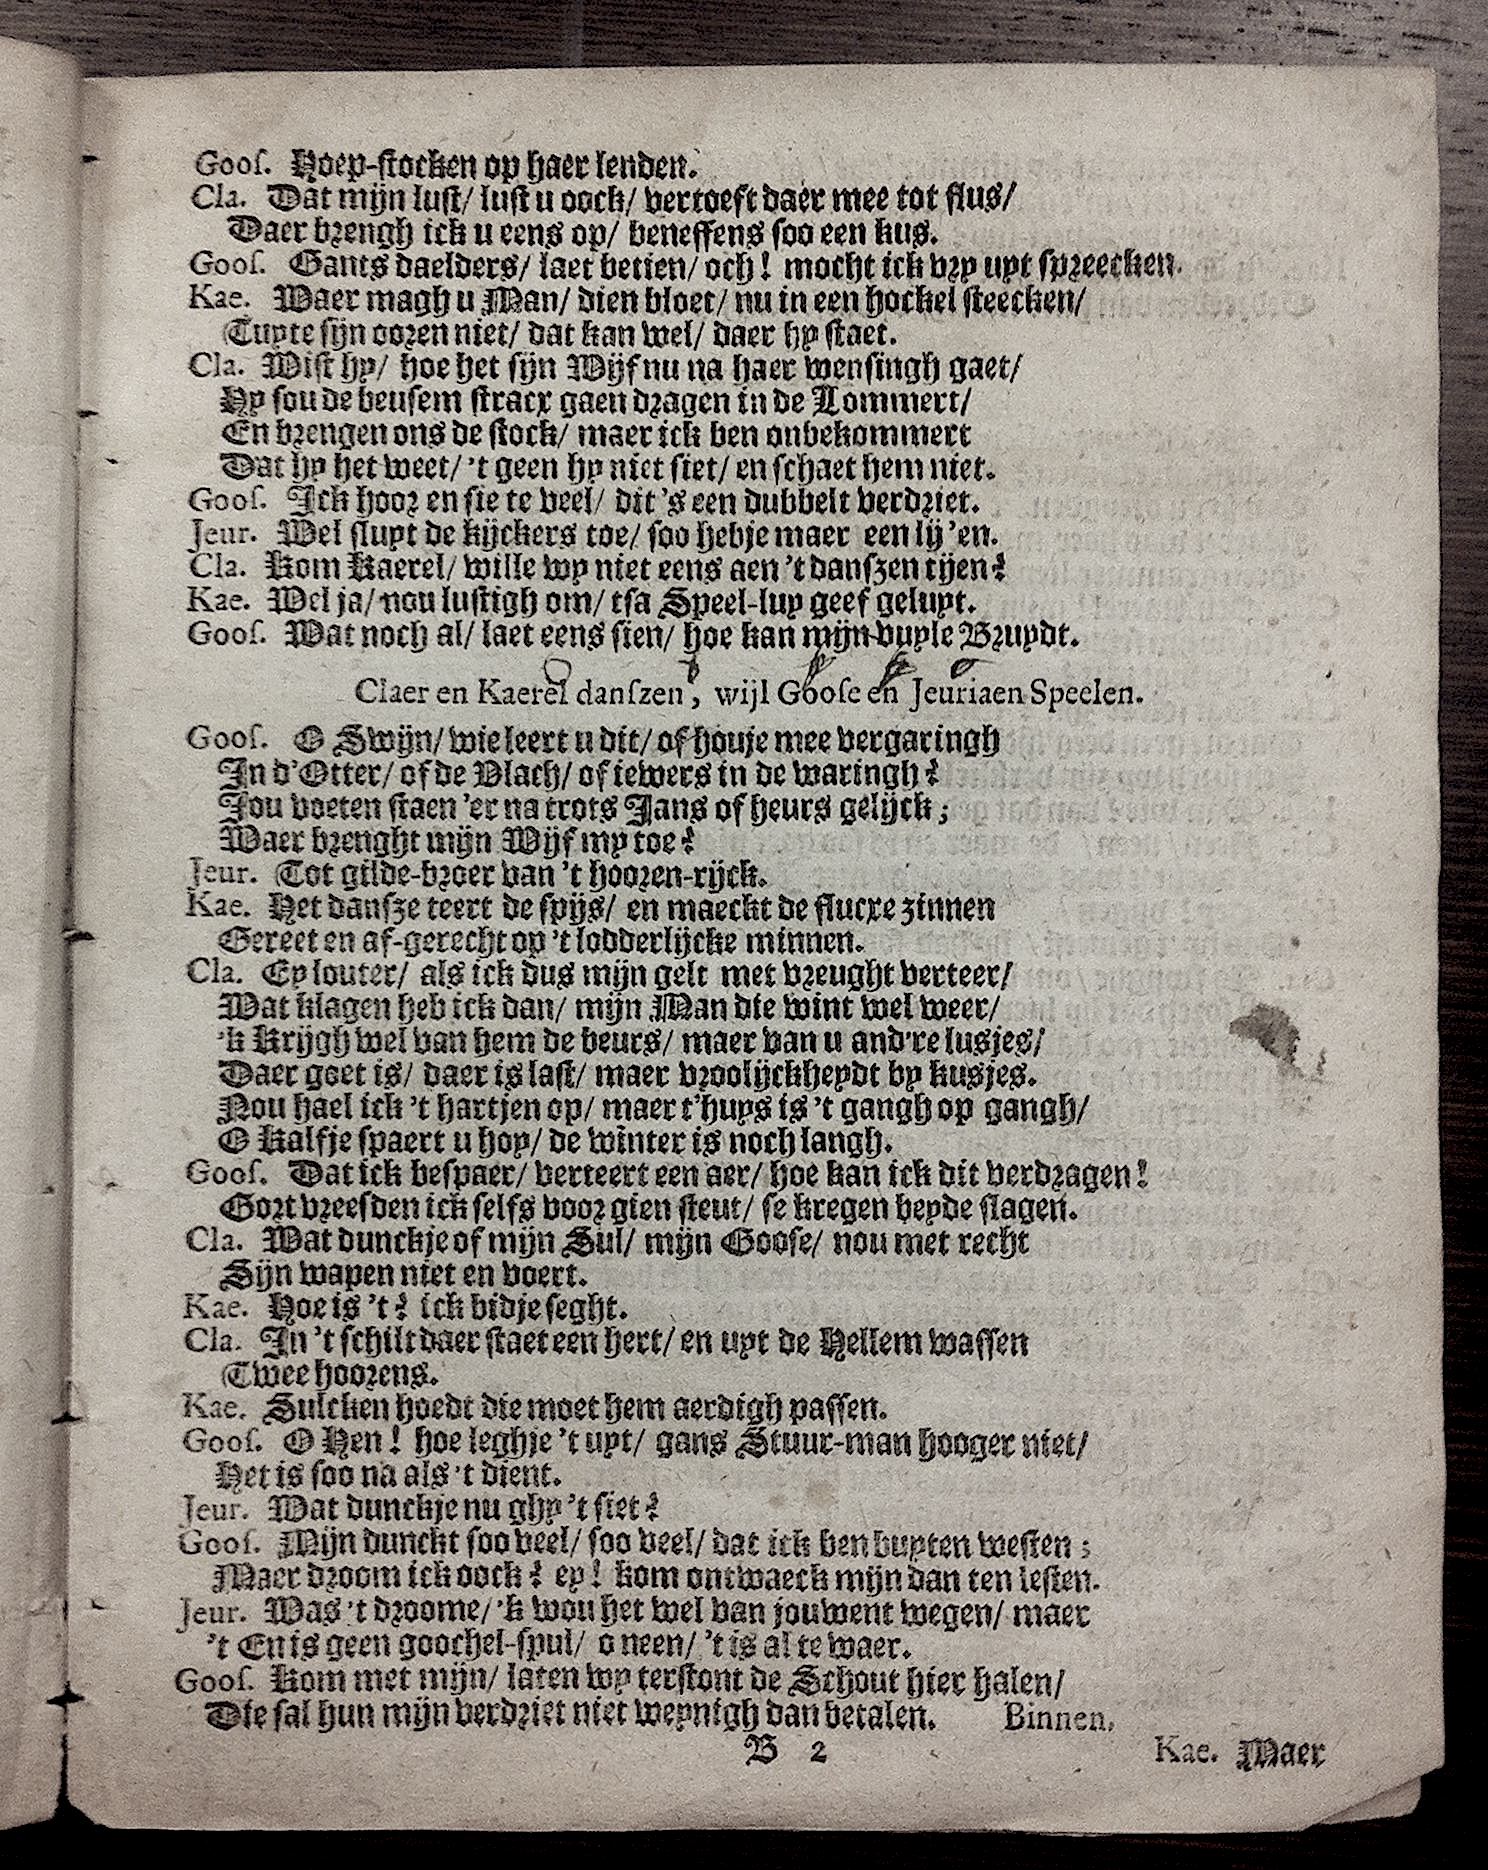 Gooſ. Hoep-ſtocken op haer lenden.
Cla. Dat mijn luſt/ luſt u oock/ vertoeft daer mee tot flus/
Daer brengh ick u eens op/ beneffens ſoo een kus.
Gooſ. Gants daelders/ laet betien/ och! mocht ick vry uyt ſpreecken.
Kae. Waer magh u Man/ dien bloet/ nu in een hockel ſteecken/
Tuyte ſijn ooren niet/ dat kan wel/ daer hy ſtaet.
Cla. Wiſt hy/ hoe het ſijn Wijf nu na haer wenſingh gaet/
Hy ſou de beuſem ſtracx gaen dragen in de Lommert/
En brengen ons de ſtock/ maer ick ben onbekommert
Dat hy het weet/ 't geen hy niet ſiet/ en ſchaet hem niet.
Gooſ. Ick hoor en ſie te veel/ dit 's een dubbelt verdriet.
Jeur. Wel ſluyt de kijckers toe/ ſoo hebje maer een lij'en.
Cla. Kom Kaerel/ wille wy niet eens aen 't danſzen tijen?
Kae. Wel ja/ nou luſtigh om/ tſa Speel-luy geef geluyt.
Gooſ. Wat noch al/ laet eens ſien/ hoe kan mijn vuyle Bruydt.
Claer en Kaerel danſzen, wijl Gooſe en Jeuriaen Speelen.
Gooſ. O Swijn/ wie leert u dit/ of houje mee vergaringh
In d'Otter/ of de Vlach/ of iewers in de waringh?
Jou voeten ſtaen 'er na trots Jans of heurs gelijck;
Waer brenght mijn Wijf my toe?
Jeur. Tot gilde-broer van 't hooren-rijck.
Kae. Het danſze teert de ſpijs/ en maeckt de flucxe zinnen
Gereet en af-gerecht op 't lodderlijcke minnen.
Cla. Ey louter/ als ick dus mijn gelt met vreught verteer/
Wat klagen heb ick dan/ mijn Man die wint wel weer/
'k Krijgh wel van hem de beurs/ maer van u and're lusjes/
Daer goet is/ daer is laſt/ maer vroolijckheydt by kusjes.
Nou hael ick 't hartjen op/ maer t'huys is 't gangh op gangh/
O Kalfje ſpaert u hoy/ de winter is noch langh.
Gooſ. Dat ick beſpaer/ verteert een aer/ hoe kan ick dit verdragen!
Gort vreeſden ick ſelfs voor gien ſteut/ ſe kregen beyde ſlagen.
Cla. Wat dunckje of mijn Sul/ mijn Gooſe/ nou met recht
Sijn wapen niet en voert.
Kae. Hoe is 't? ick bidje ſeght.
Cla. In 't ſchilt daer ſtaet een hert/ en uyt de Hellem waſſen
Twee hoorens.
Kae. Sulcken hoedt die moet hem aerdigh paſſen.
Gooſ. O Hen! hoe leghje 't uyt/ gans Stuur-man hooger niet/
Het is ſoo na als 't dient.
Jeur. Wat dunckje nu ghy 't ſiet?
Gooſ. Mijn dunckt ſoo veel/ ſoo veel/ dat ick ben buyten weſten;
Maer droom ick oock? ey! kom ontwaeck mijn dan ten leſten.
Jeur. Was 't droome/ 'k wou het wel van jouwent wegen/ maer
't En is geen goochel-ſpul/ o neen/ 't is al te waer.
Gooſ. Kom met mijn/ laten wy terſtont de Schout hier halen/
Die ſal hun mijn verdriet niet weynigh dan betalen. Binnen.
B 2
Kae. Maer